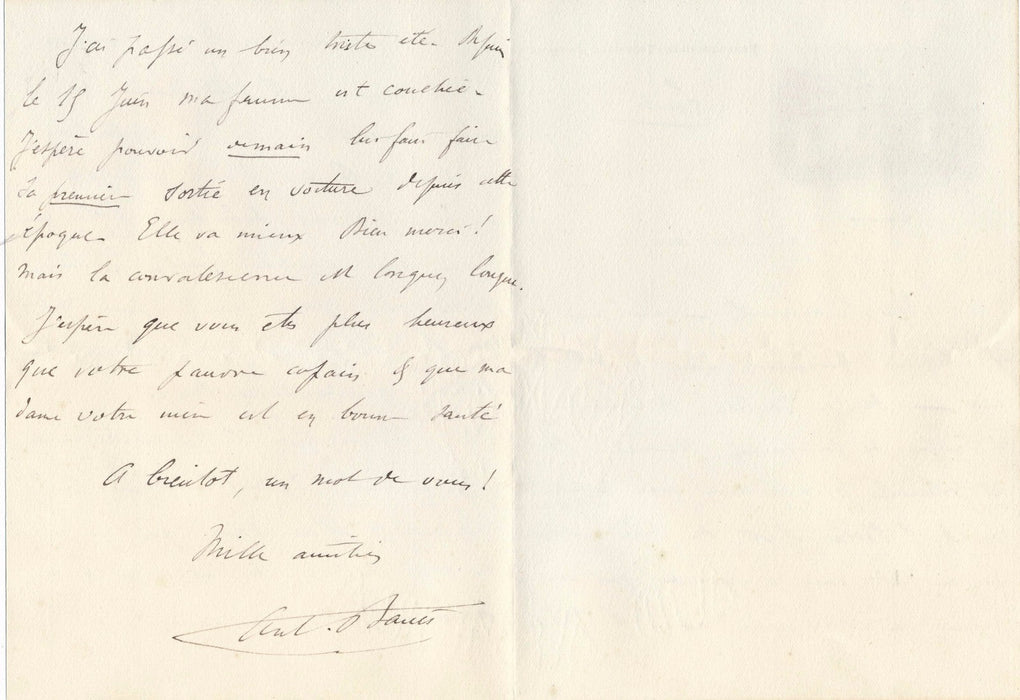 J'ai passé un bien triste été. Depuis
le 15 Juin ma femme est couchée.
J'espère pouvoir demain lui faire faire
sa première sortie en voiture depuis cette
époque. Elle va mieux Dieu merci!
mais la convalescence est longue, longue.
J'espère que vous êtes plus heureux
que votre pauvre copain & que ma
dame votre mère est en bonne santé
A bientôt, un mot de vous!
Mille amitiés
Ant. Banès